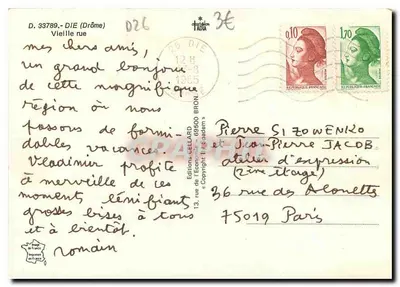 D. 33789.- DIE (Drôme)
Vieille rue
D26
3€
mes chers amis,
un grand bonjour
de cette magnifique
région où nous
passons de formi-
dables vacances.
Vladimir profite
à merveille de ces
moments lénifiants
grosses bises à tous
et à bientôt.
romain
Editions CELLARD
13, rue de l'Epargne - 69500 BRON
« Copyright by Cap-Theojac »
26 DIE
12 H
1985
0,10
1,70
Pierre SIZOWENKO
et Jean-Pierre JACOB
atelier d'expression
(2ème étage)
36 rue des Alouettes
75019 Paris